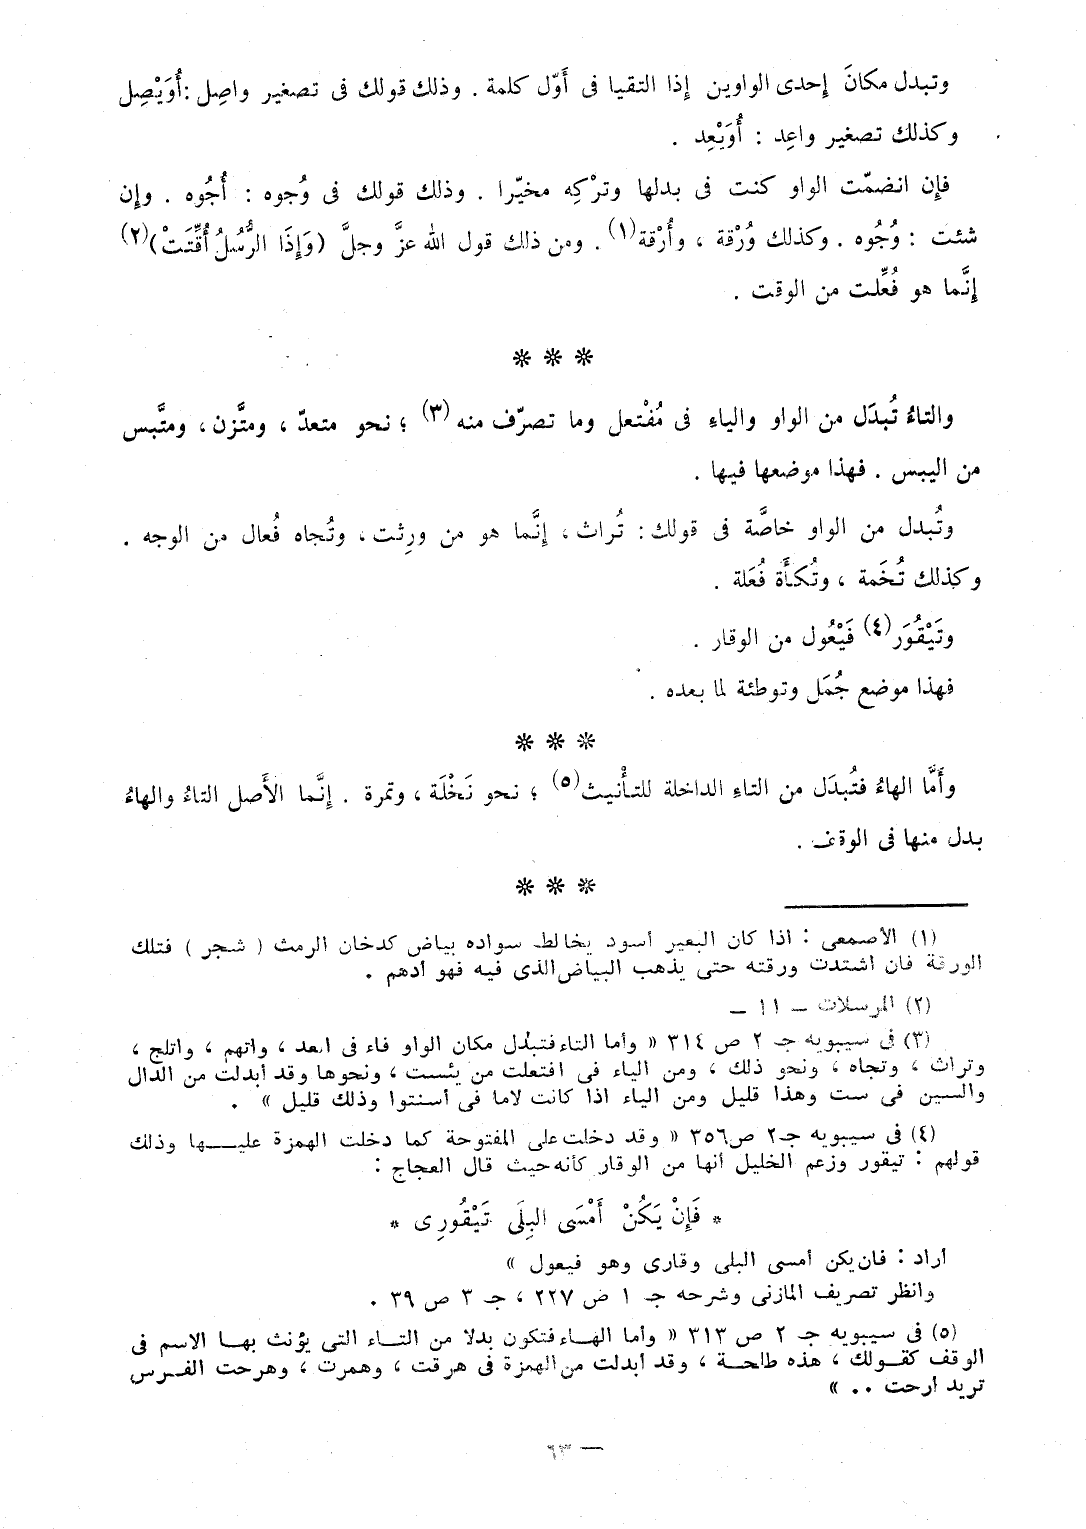 وتبدل مكانَ إحدى الواوين إذا التقيا فى أَوّل كلمة . وذلك قولك فى تصغير واصِل : أُوَيْصِل
وكذلك تصغير واعِد : أُوَيْعِد .
فإن انضمّت الواو كنت فى بدلها وترْكِه مخيّرا . وذلك قولك فى وُجوه : أُجُوه . وإن
شئت : وُجُوه . وكذلك وُرْقة ، وأُرْقة(١) . ومن ذلك قول الله عزَّ وجلَّ (وَإِذَا الرُّسُلُ أُقِّتَتْ)(٢)
إنَّما هو فُعِّلت من الوقت .
❊ ❊ ❊
والتاءُ تُبدَل من الواو والياءِ فى مُفْتعل وما تصرّف منه(٣) ؛ نحو متعدّ ، ومتَّزن ، ومتَّبس
من اليبس . فهذا موضعها فيها .
وتُبدل من الواو خاصَّة فى قولك : تُراث ، إنَّما هو من ورِثت ، وتُجاه فُعال من الوجه .
وكذلك تُخَمة ، وتُكأَة فُعَلة .
وتَيْقُور(٤) فَيْعُول من الوقار .
فهذا موضع جُمَل وتوطئة لما بعده .
❊ ❊ ❊
وأَمَّا الهاءُ فتُبدَل من التاءِ الداخلة للتأْنيث(٥) ؛ نحو نَخْلَة ، وتمرة . إنَّما الأَصل التاءُ والهاءُ
بدل منها فى الوقف .
❊ ❊ ❊
(١) الأصمعى : اذا كان البعير أسود يخالط سواده بياض كدخان الرمث ( شجر ) فتلك
الورقة فان اشتدت ورقته حتى يذهب البياض الذى فيه فهو أدهم .
(٢) المرسلات – ١١ –
(٣) فى سيبويه جـ ٢ ص ٣١٤ « وأما التاء فتبدل مكان الواو فاء فى اتعد ، واتهم ، واتلج ،
وتراث ، وتجاه ، ونحو ذلك ، ومن الياء فى افتعلت من يئست ، ونحوها وقد أبدلت من الدال
والسين فى ست وهذا قليل ومن الياء اذا كانت لاما فى أسنتوا وذلك قليل » .
(٤) فى سيبويه جـ٢ ص٣٥٦ « وقد دخلت على المفتوحة كما دخلت الهمزة عليـــها وذلك
قولهم : تيقور وزعم الخليل أنها من الوقار كأنه حيث قال العجاج :
* فَإِنْ يَكُنْ أَمْسَى البِلَى تَيْقُورِى *
أراد : فان يكن أمسى البلى وقارى وهو فيعول »
وانظر تصريف المازنى وشرحه جـ ١ ص ٢٢٧ ، جـ ٣ ص ٣٩ .
(٥) فى سيبويه جـ ٢ ص ٣١٣ « وأما الهـاء فتكون بدلا من التـاء التى يؤنث بهـا الاسم فى
الوقف كقـولك ، هذه طلحـة ، وقد أبدلت من الهمزة فى هرقت ، وهمرت ، وهرحت الفـرس
تريد أرحت .. »
— ٦٣